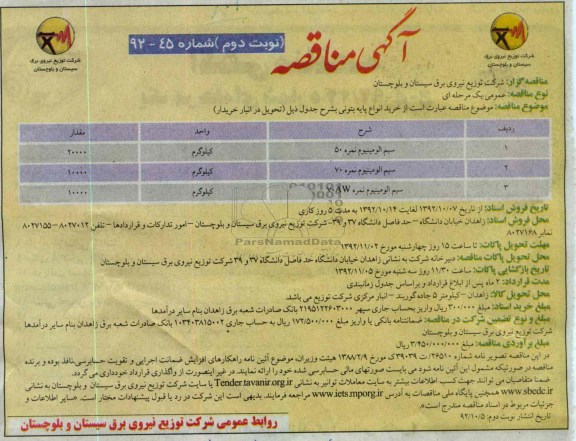 آگهی مناقصه
(نوبت دوم) شماره ٤٥ - ٩٢
شرکت توزیع نیروی برق
سیستان و بلوچستان
شرکت توزیع نیروی برق
سیستان و بلوچستان
مناقصه گزار: شرکت توزیع نیروی برق سیستان و بلوچستان
نوع مناقصه: عمومی یک مرحله ای
موضوع مناقصه: موضوع مناقصه عبارت است از خرید انواع پایه بتونی بشرح جدول ذیل (تحویل در انبار خریدار)
ردیف شرح واحد مقدار
۱ سیم آلومینیوم نمره ۵۰ کیلوگرم ۲۰۰۰۰
۲ سیم آلومینیوم نمره ۷۰ کیلوگرم ۱۰۰۰۰
۳ سیم آلومینیوم نمره کیلوگرم ۱۰۰۰۰
تاریخ فروش اسناد: از تاریخ ۱۳۹۲/۱۰/۰۷ لغایت ۱۳۹۲/۱۰/۱۴ به مدت ۵ روز کاری
محل فروش اسناد: زاهدان خیابان دانشگاه – حد فاصل دانشگاه ۳۷ و ۳۹- شرکت توزیع نیروی برق سیستان و بلوچستان – امور تدارکات و قراردادها – تلفن ۸۰۲۷۰۱۲ – ۸۰۲۷۱۵۵
نمابر ۸۰۲۷۱۶۸
مهلت تحویل پاکات: تا ساعت ۱۵ روز چهارشنبه مورخ ۱۳۹۲/۱۱/۰۲
محل تحویل پاکات: دبیرخانه شرکت به نشانی زاهدان خیابان دانشگاه حد فاصل دانشگاه ۳۷ و ۳۹ شرکت توزیع نیروی برق سیستان و بلوچستان
تاریخ بازگشایی پاکات: ساعت ۱۱/۳۰ روز سه شنبه مورخ ۱۳۹۲/۱۱/۰۵
مدت قرارداد: ۲ ماه پس از ابلاغ قرارداد و براساس جدول زمانبندی
محل تحویل کالا: زاهدان – کیلومتر ۵ جاده گوربند – انبار مرکزی شرکت توزیع می باشد.
مبلغ خرید اسناد: مبلغ ۳۰۰/۰۰۰ ریال واریز بحساب جاری سپهر ۲۱۹۵۱۲۲۶۰۳۰۰۰ بانک صادرات شعبه برق زاهدان بنام سایر درآمدها
مبلغ و نوع تضمین شرکت در مناقصه: ضمانتنامه بانکی یا واریز مبلغ ۱۷۲/۵۰۰/۰۰۰ ریال به حساب جاری ۱۰۳۴۰۳۸۱۵۰۰۲ بانک صادرات شعبه برق زاهدان بنام سایر درآمدها
شرکت توزیع نیروی برق سیستان و بلوچستان
مبلغ برآوردی مناقصه: مبلغ ۳/۴۵۰/۰۰۰/۰۰۰ ریال
در این مناقصه تصویر نامه شماره ۲۶۵۱۰/ت ۳۹۰۳۹ ک مورخ ۱۳۸۸/۲/۹ هیئت وزیران، موضوع آئین نامه راهکارهای افزایش ضمانت اجرایی و تقویت حسابرسی نافذ بوده و برنده
مناقصه در صورتیکه مشمول این آئین نامه شود می بایست صورتهای مالی حسابرسی شده خود را ارائه نمایند. در غیر اینصورت از واگذاری قرارداد خودداری می گردد.
ضمنا متقاضیان می توانند جهت کسب اطلاعات بیشتر به سایت معاملات توانیر به نشانی Tender.tavanir.org.ir یا سایت شرکت توزیع نیروی برق سیستان و بلوچستان به نشانی
www.sbedc.ir همچنین پایگاه ملی مناقصات به آدرس www.iets.mporg.ir مراجعه فرمایند. بدیهی است این شرکت در رد یا قبول پیشنهادات مختار است. سایر اطلاعات و
جزئیات مربوط در اسناد مناقصه مندرج است.
تاریخ انتشار نوبت دوم: ۹۲/۱۰/۵
روابط عمومی شرکت توزیع نیروی برق سیستان و بلوچستان
ParsNamadData